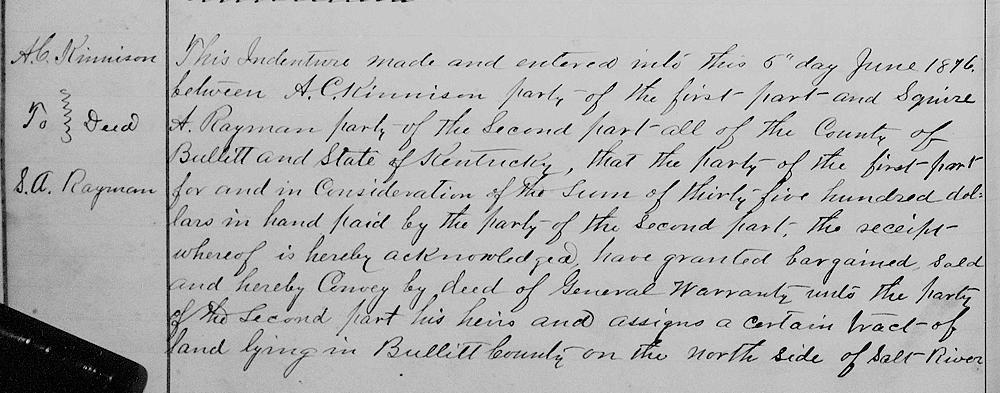 A.C. Kinnison
To } Deed
S.A. Rayman
This Indenture made and entered into this 5" day June 1876.
between A.C. Kinnison party of the first part and Squire
A. Rayman party of the Second part all of the County of
Bullitt and State of Kentucky, that the party of the first part
for and in Consideration of the Sum of thirty five hundred dol-
lars in hand paid by the party of the Second part, the receipt
whereof is hereby acknowledged, have granted bargained, Sold
and hereby Convey by deed of General Warranty unto the party
of the Second part his heirs and assigns a certain tract of
land lying in Bullitt County on the north side of Salt River